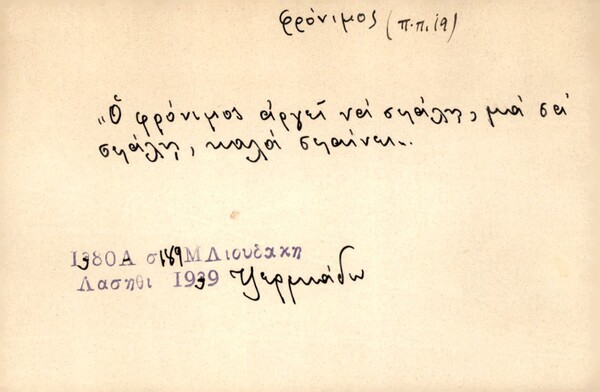 φρόνιμος (π.π. 19)
„Ὁ φρόνιμος ἀργεῖ νὰ σφάλῃ, μὰ σὰ
σφάλῃ, καλὰ σφαίνει„.
1380Α σ 189 Μ Λιουδακη
Λασηθι 1939 Τζερμιάδω